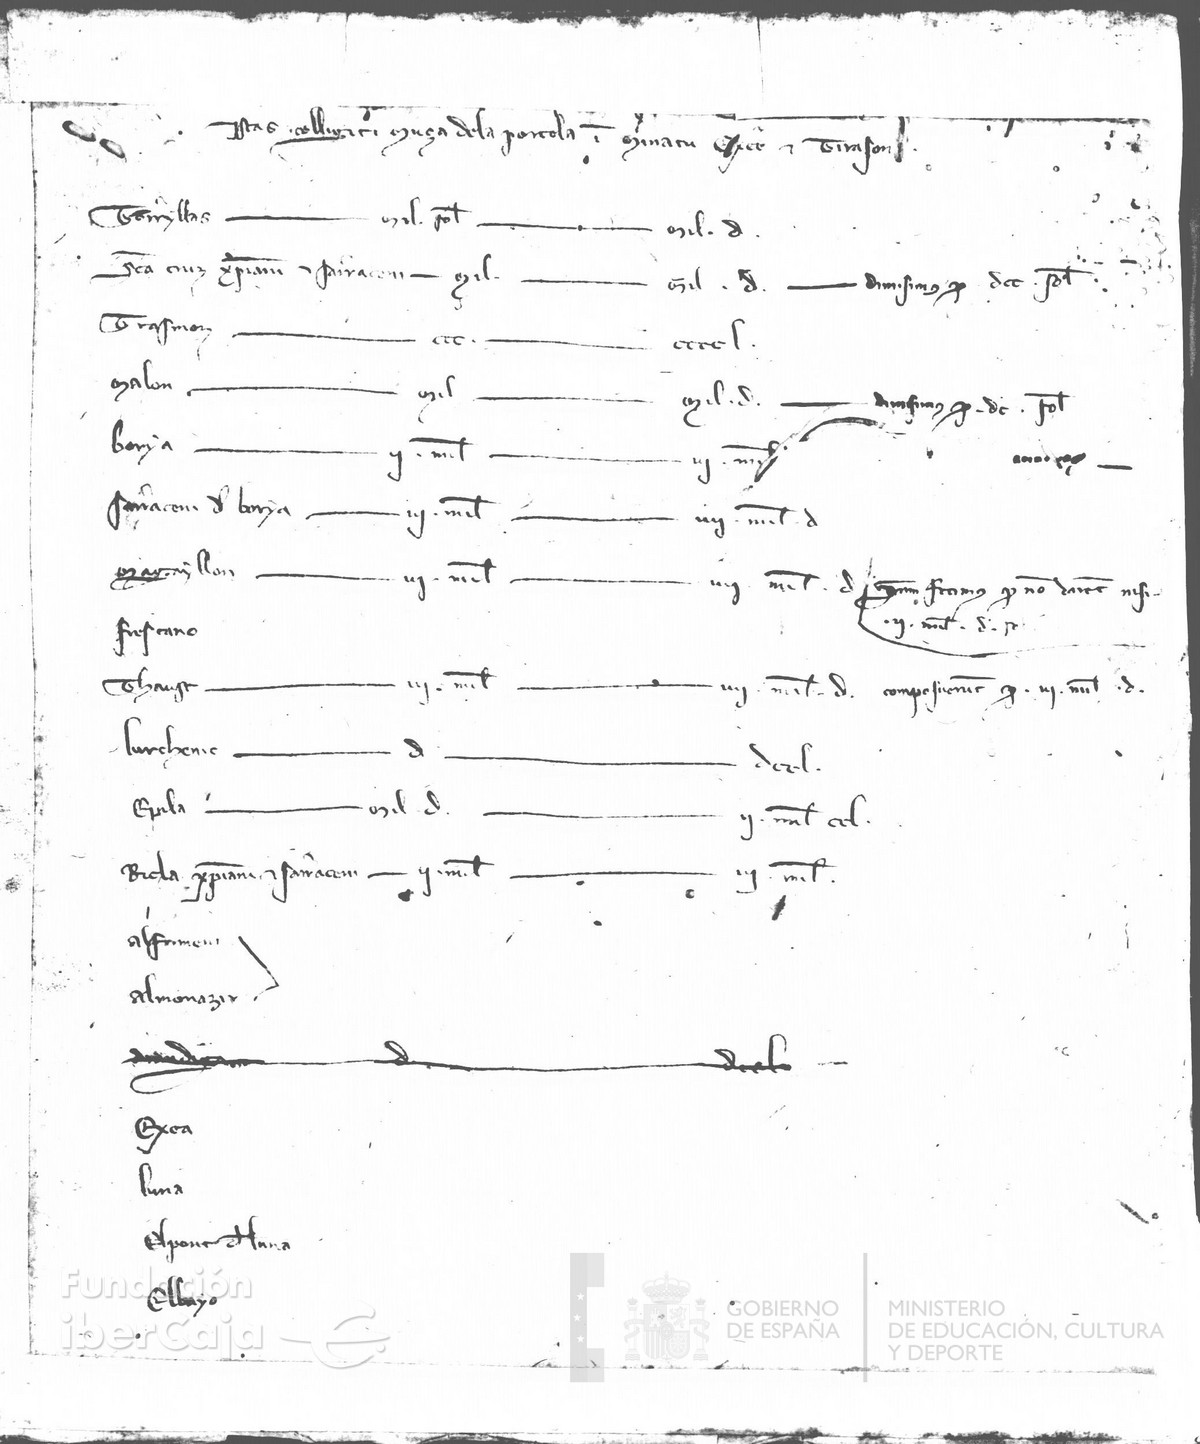 Istas colligit Muça dela portela i
Torryllas mil sol mil d.
Sca cruz xpiani et sarraceni mil. mil. d. dimisimus dcc. sol
Trasmoz ccc. ccccl.
Malon mil mil.d. dimisimus dc. sol
borja ij. mil iij. mil
sarraceni d borja iij. mil iiij. mil d
Magayllon iij. mil iiij. mil. d fecimus no nisi
ij. mil. d.
frescano
Thaust iij. mil iiij. mil. d. composuerut iij. mil d.
lurchenic d dccl.
Epila mil d. ij. mil ccl.
Ricla xpiani et sarraceni ij. mil iij. mil.
alfamen
almonazir
d dccl
Exea
luna
El pont d luna
El bayo
Fundación
iberCaja
GOBIERNO
DE ESPAÑA
MINISTERIO
DE EDUCACIÓN, CULTURA
Y DEPORTE